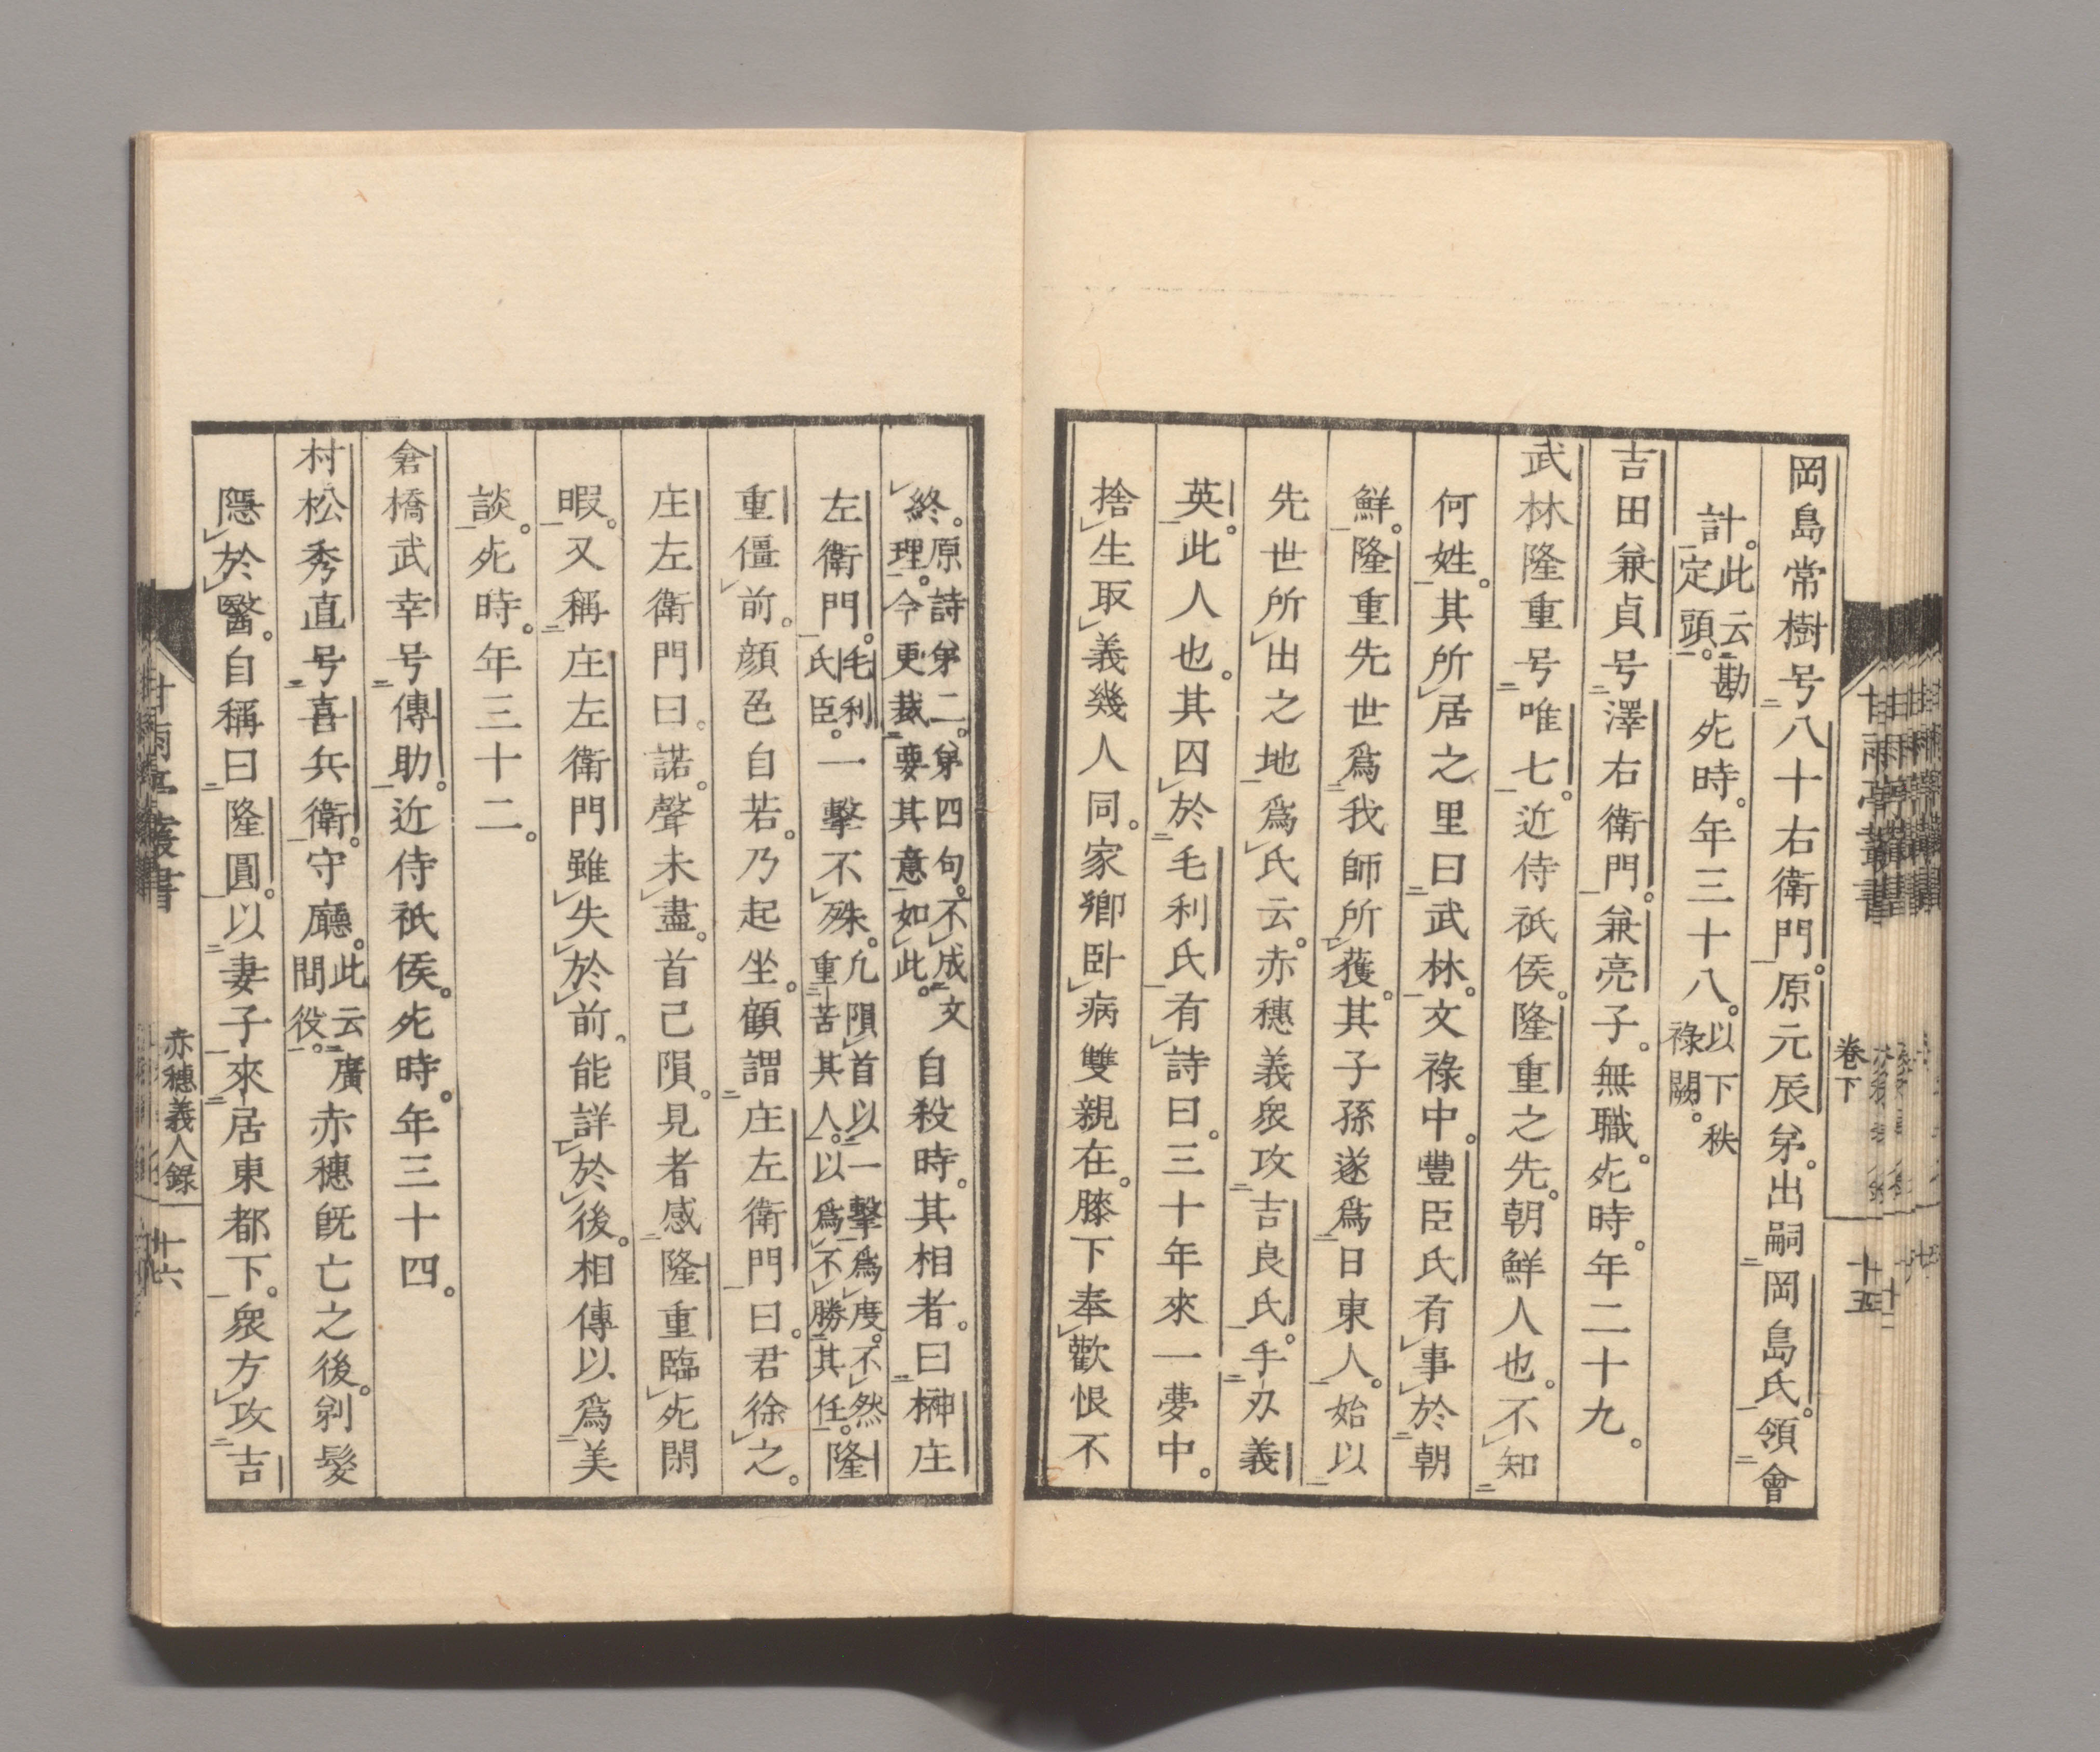 岡島常樹号八十右衛門。原元辰弟。出嗣岡島氏。領會
計。此云勘定頭。死時。年三十八。以下秩祿闕。
吉田兼貞号澤右衛門。兼亮子。無職。死時。年二十九。
武林隆重号唯七。近侍祇候。隆重之先。朝鮮人也。不知
何姓。其所居之里曰武林。文祿中。豐臣氏有事於朝
鮮。隆重先世爲我師所獲。其子孫遂爲日東人。始以
先世所出之地爲氏云。赤穗義衆攻吉良氏。手刃義
英。此人也。其囚於毛利氏有詩曰。三十年來一夢中。
捨生取義幾人同。家鄉臥病雙親在。膝下奉歡恨不
終。原詩第二。第四句。不成文理。今更裁要其意如此。自殺時。其相者。曰榊庄
左衛門。毛利氏臣。一擊不殊。凡隕首以一擊爲度。不然重苦其人。以爲不勝其任。隆
重僵前。顔色自若。乃起坐。顧謂庄左衛門曰。君徐之。
庄左衛門曰。諾。聲未盡。首已隕。見者感隆重臨死閑
暇。又稱庄左衛門雖失於前。能詳於後。相傳以爲美
談。死時。年三十二。
倉橋武幸号傳助。近侍祇候。死時。年三十四。
村松秀直号喜兵衛。守廳。此云廣間役。赤穗既亡之後。剃髮
隱於醫。自稱曰隆圓。以妻子來居東都下。衆方攻吉
甘雨亭叢書
卷下
十五
甘雨亭叢書
赤穗義人錄
十六